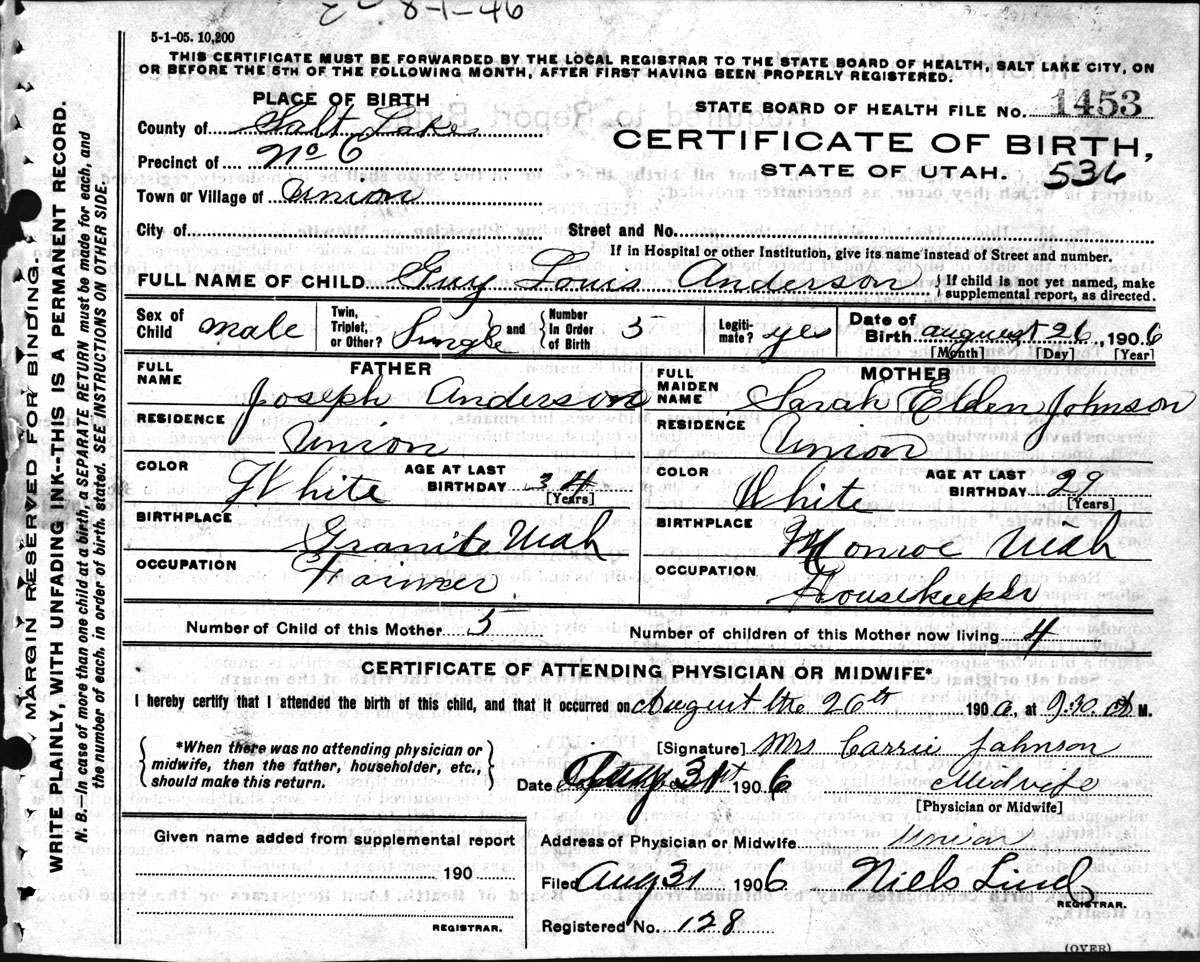 8-1-46
5-1-05. 10,200
THIS CERTIFICATE MUST BE FORWARDED BY THE LOCAL REGISTRAR TO THE STATE BOARD OF HEALTH, SALT LAKE CITY, ON
OR BEFORE THE 5TH OF THE FOLLOWING MONTH, AFTER FIRST HAVING BEEN PROPERLY REGISTERED.
PLACE OF BIRTH
STATE BOARD OF HEALTH FILE No. 1453
County of Salt Lake
CERTIFICATE OF BIRTH,
Precinct of No 6
STATE OF UTAH. 536
Town or Village of Union
City of Street and No.
If in Hospital or other Institution, give its name instead of Street and number.
FULL NAME OF CHILD. Guy Louis Anderson { If child is not yet named, make supplemental report, as directed.
Sex of Child male Twin, Triplet, or Other? Single } and { Number In Order of Birth 5 Legitimate? yes Date of Birth august 26, 1906
[Month] [Day] [Year]
FATHER MOTHER
FULL NAME Joseph Anderson FULL MAIDEN NAME Sarah Elden Johnson
RESIDENCE Union RESIDENCE Union
COLOR White AGE AT LAST BIRTHDAY 34 [Years] COLOR White AGE AT LAST BIRTHDAY 29 [Years]
BIRTHPLACE Granite Utah BIRTHPLACE Monroe Utah
OCCUPATION Farmer OCCUPATION Housekeeper
Number of Child of this Mother 5 Number of children of this Mother now living 4
CERTIFICATE OF ATTENDING PHYSICIAN OR MIDWIFE*
I hereby certify that I attended the birth of this child, and that it occurred on August the 26th 1906, at 9:30 M.
{ *When there was no attending physician or midwife, then the father, householder, etc., should make this return. }
[Signature] Mrs Carrie Johnson
Date Aug 31st 1906 Midwife
[Physician or Midwife]
Given name added from supplemental report
Address of Physician or Midwife Union
190
Filed Aug 31 1906 Niels Lind
REGISTRAR.
REGISTRAR.
Registered No. 128
(OVER)
MARGIN RESERVED FOR BINDING.
WRITE PLAINLY, WITH UNFADING INK--THIS IS A PERMANENT RECORD.
N. B.—In case of more than one child at a birth, a SEPARATE RETURN must be made for each, and
the number of each, in order of birth, stated. SEE INSTRUCTIONS ON OTHER SIDE.